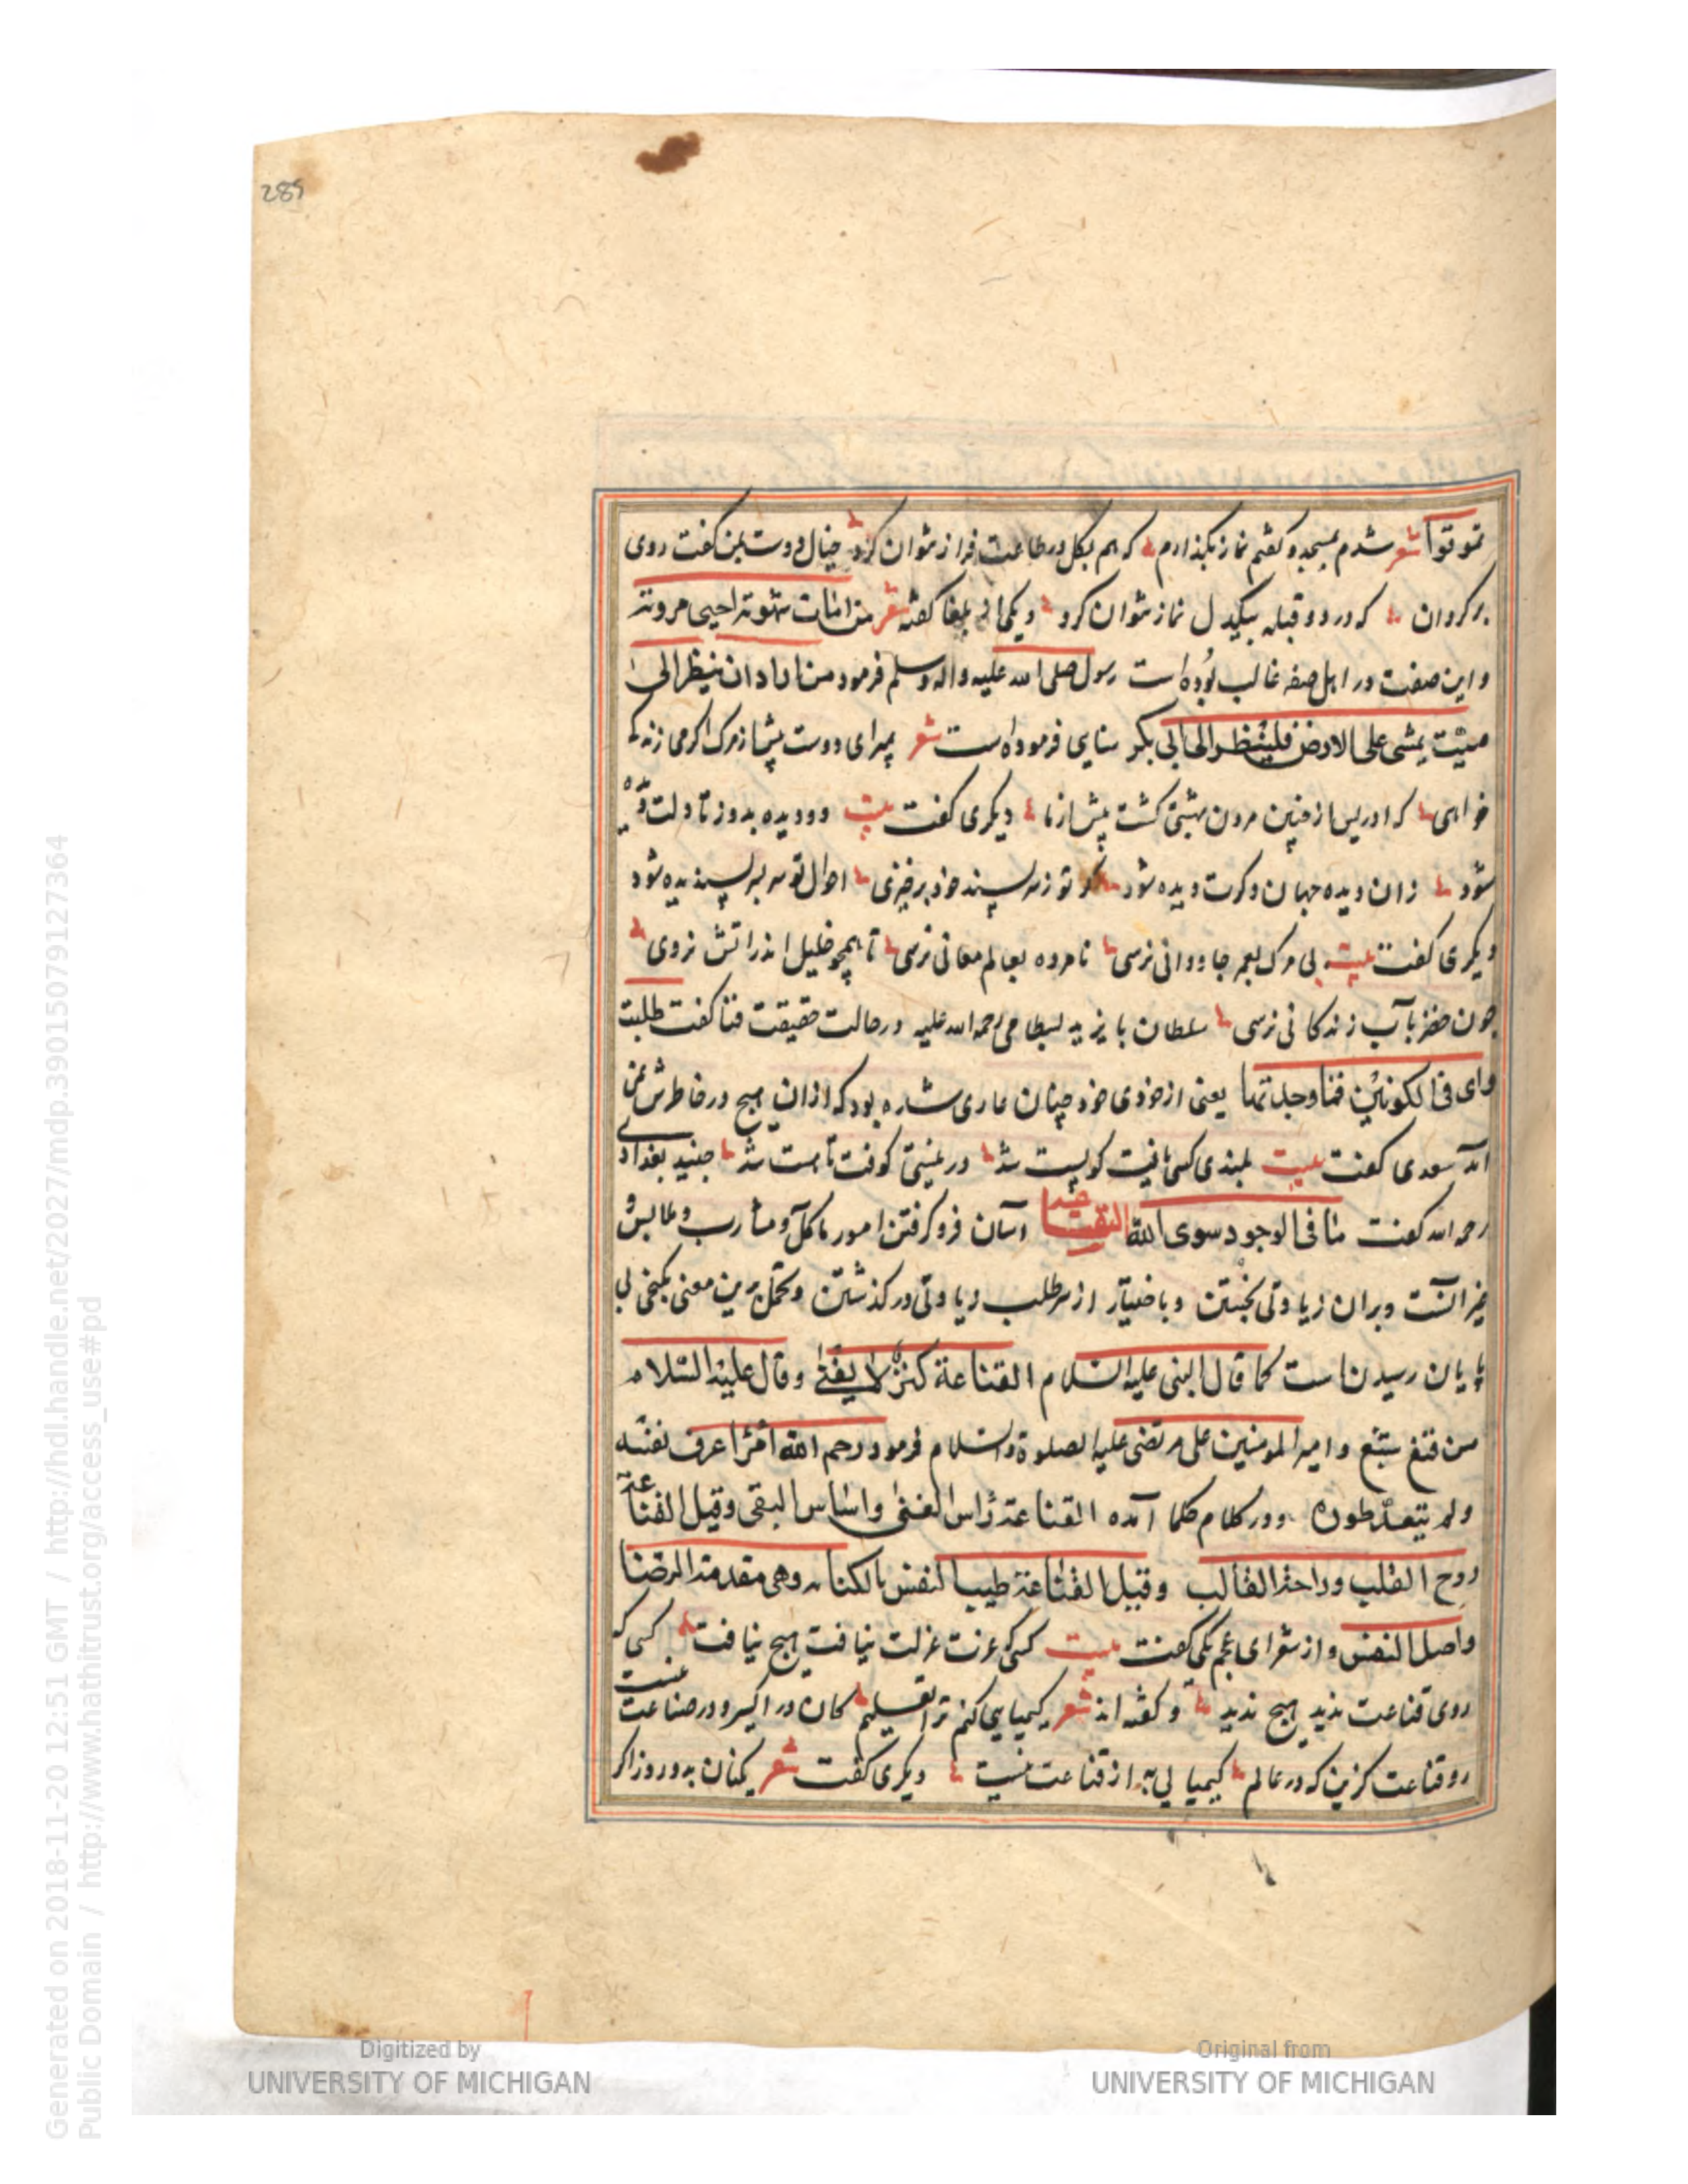 289
تموتوا شعر شدم بمسجد و گفتم نماز بگذارم که هم بکل در طاعت فراز نتوان کرد خیال دوست بمن گفت روی
برگردان که در دو قبله بیکدل نماز نتوان کرد و یکی از بلغا گفته شعر من امات شهوته احیی مروته
و این صفت در اهل صفه غالب بوده است رسول صلی الله علیه واله وسلم فرمود من اراد ان ینظر الی
میت یمشی علی الارض فلینظر الی ابی بکر سنایی فرموده است شعر بمیر ای دوست پیش از مرگ اگر می زندگی
خواهی که ادریس از چنین مردن بهشتی گشت پیش از ما دیگری گفت بیت دو دیده بدوز تا دلت دیده
شود زان دیده جهان دگرت دیده شود گر تو ز سر پسند خود برخیزی احوال تو سربسر پسندیده شود
دیگری گفت بیت بی مرگ بعمر جاودانی نرسی نامرده بعالم معانی نرسی تا همچو خلیل اندر آتش نروی
چون خضر بآب زندگانی نرسی سلطان بایزید بسطامی رحمه الله علیه در حالت حقیقت فنا گفت طلبت
رای فی الکونین فما وجدتها یعنی از خودی خود چنان عاری شده بود که از ان هیچ در خاطرش نمی
آمد سعدی گفت بیت بلندی کسی یافت کو پست شد در نیستی کوفت تا هست شد جنید بغدادی
رحمه الله گفت ما فی الوجود سوی الله القناعة آسان فرو گرفتن امور ماکل و مشارب و ملابس
خیر آنست وبران زیادتی نجستن و باختیار از سر طلب زیادتی درگذشتن و تحمل برین معنی بگنجی بی
پایان رسیدن است کما قال النبی علیه السلام القناعة کنز لا یفنی وقال علیه السلام
من قنع شبع و امیر المومنین علی مرتضی علیه الصلوة والسلام فرمود رحم الله امرا عرف نفسه
ولم یتعد طوره و در کلام حکما آمده القناعة راس الغنی واساس التقی وقیل القناعة
روح القلب وراحة القالب وقیل القناعة طیب النفس بالکفاف وهی مقدمة الرضا
واصل النفس و از شعرای عجم یکی گفت بیت کسی که عزت عزلت نیافت هیچ نیافت کسی که
روی قناعت ندید هیچ ندید و گفته اند شعر کیمیایی کنم ترا تعلیم کان در اکسیر و در صناعت نیست
رو قناعت گزین که در عالم کیمیایی به از قناعت نیست دیگری گفت شعر یکنان بدو روز اگر
Digitized by
UNIVERSITY OF MICHIGAN
Original from
UNIVERSITY OF MICHIGAN
Generated on 2018-11-20 12:51 GMT / http://hdl.handle.net/2027/mdp.39015079127364
Public Domain / http://www.hathitrust.org/access_use#pd